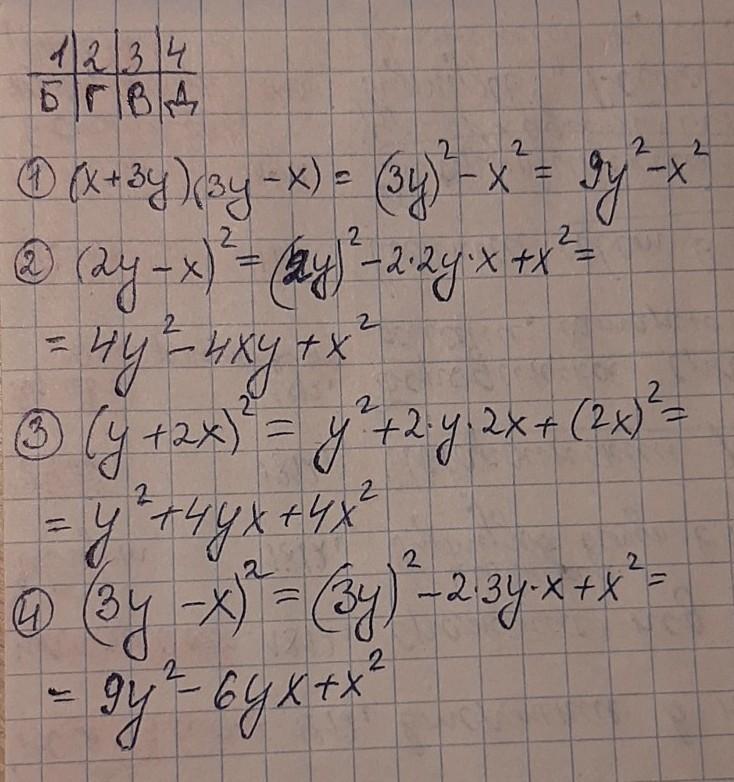 1 2 3 4
Б Г В Д
① (x+3y)(3y-x) = (3y)² - x² = 9y² - x²
② (2y-x)² = (2y)² - 2·2y·x + x² =
= 4y² - 4xy + x²
③ (y+2x)² = y² + 2·y·2x + (2x)² =
= y² + 4yx + 4x²
④ (3y-x)² = (3y)² - 2·3y·x + x² =
= 9y² - 6yx + x²